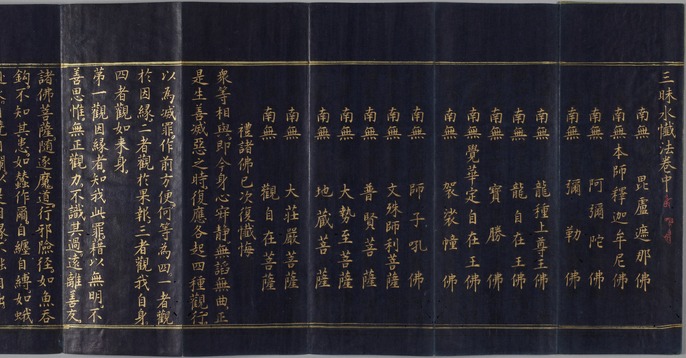 三昧水懺法卷中
南無 毘盧遮那佛
南無本師釋迦牟尼佛
南無 阿彌陀佛
南無 彌勒佛
南無 龍種上尊王佛
南無 龍自在王佛
南無 寶勝佛
南無覺華定自在王佛
南無 袈裟幢佛
南無 師子吼佛
南無 文殊師利菩薩
南無 普賢菩薩
南無 大勢至菩薩
南無 地藏菩薩
南無 大莊嚴菩薩
南無 觀自在菩薩
禮諸佛已次復懺悔
衆等相與即今身心寂靜無謟無曲正
是生善滅惡之時復應各起四種觀行
以為滅罪作前方便何等為四一者觀
於因緣二者觀於果報三者觀我自身
四者觀如来身
第一觀因緣者知我此罪藉以無明不
善思惟無正觀力不識其過遠離善友
諸佛菩薩隨逐魔道行邪險徑如魚吞
鈎不知其患如蠶作繭自纏自縛如蛾